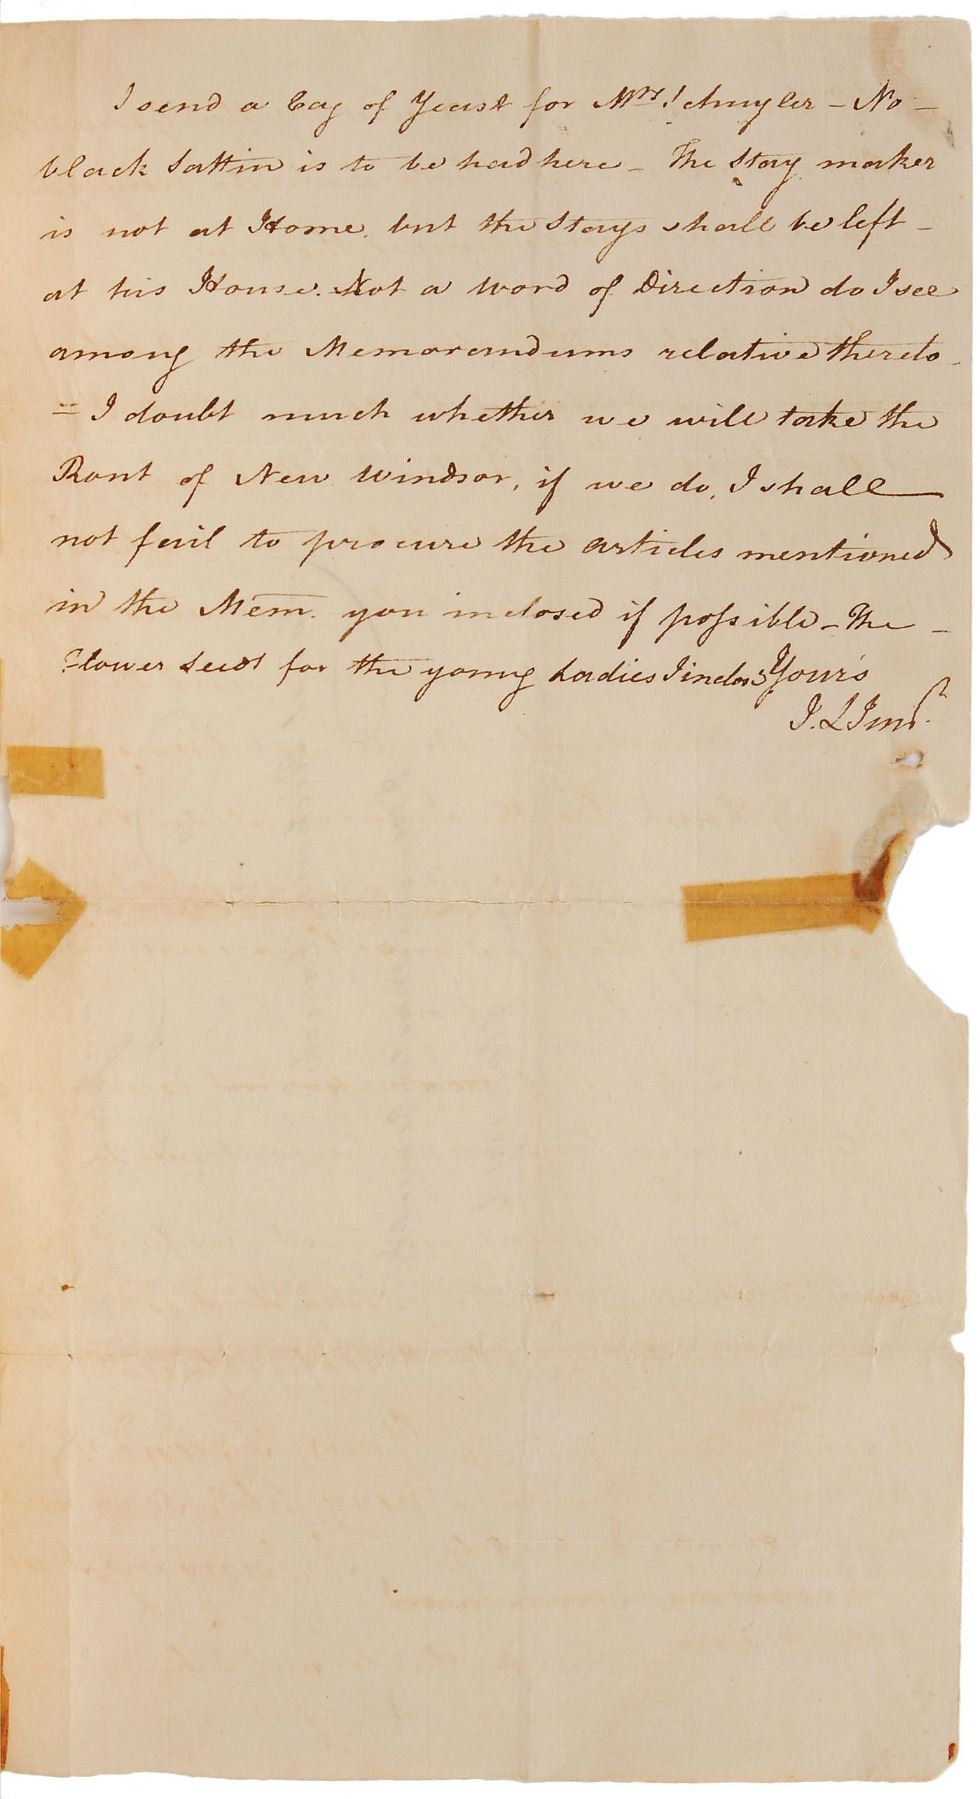 I send a Cag of Yeast for Mrs. Schuyler – No –
black Sattin is to be had here – The Stay maker
is not at Home, but the Stays shall be left –
at his House. Not a word of Direction do I see
among the Memorandums relative thereto –
= I doubt much whether we will take the
Rout of New Windsor, if we do, I shall
not fail to procure the articles mentioned
in the Mem. you inclosed if possible – The –
Flower Seeds for the young Ladies I inclose Yours
J. L Junr.